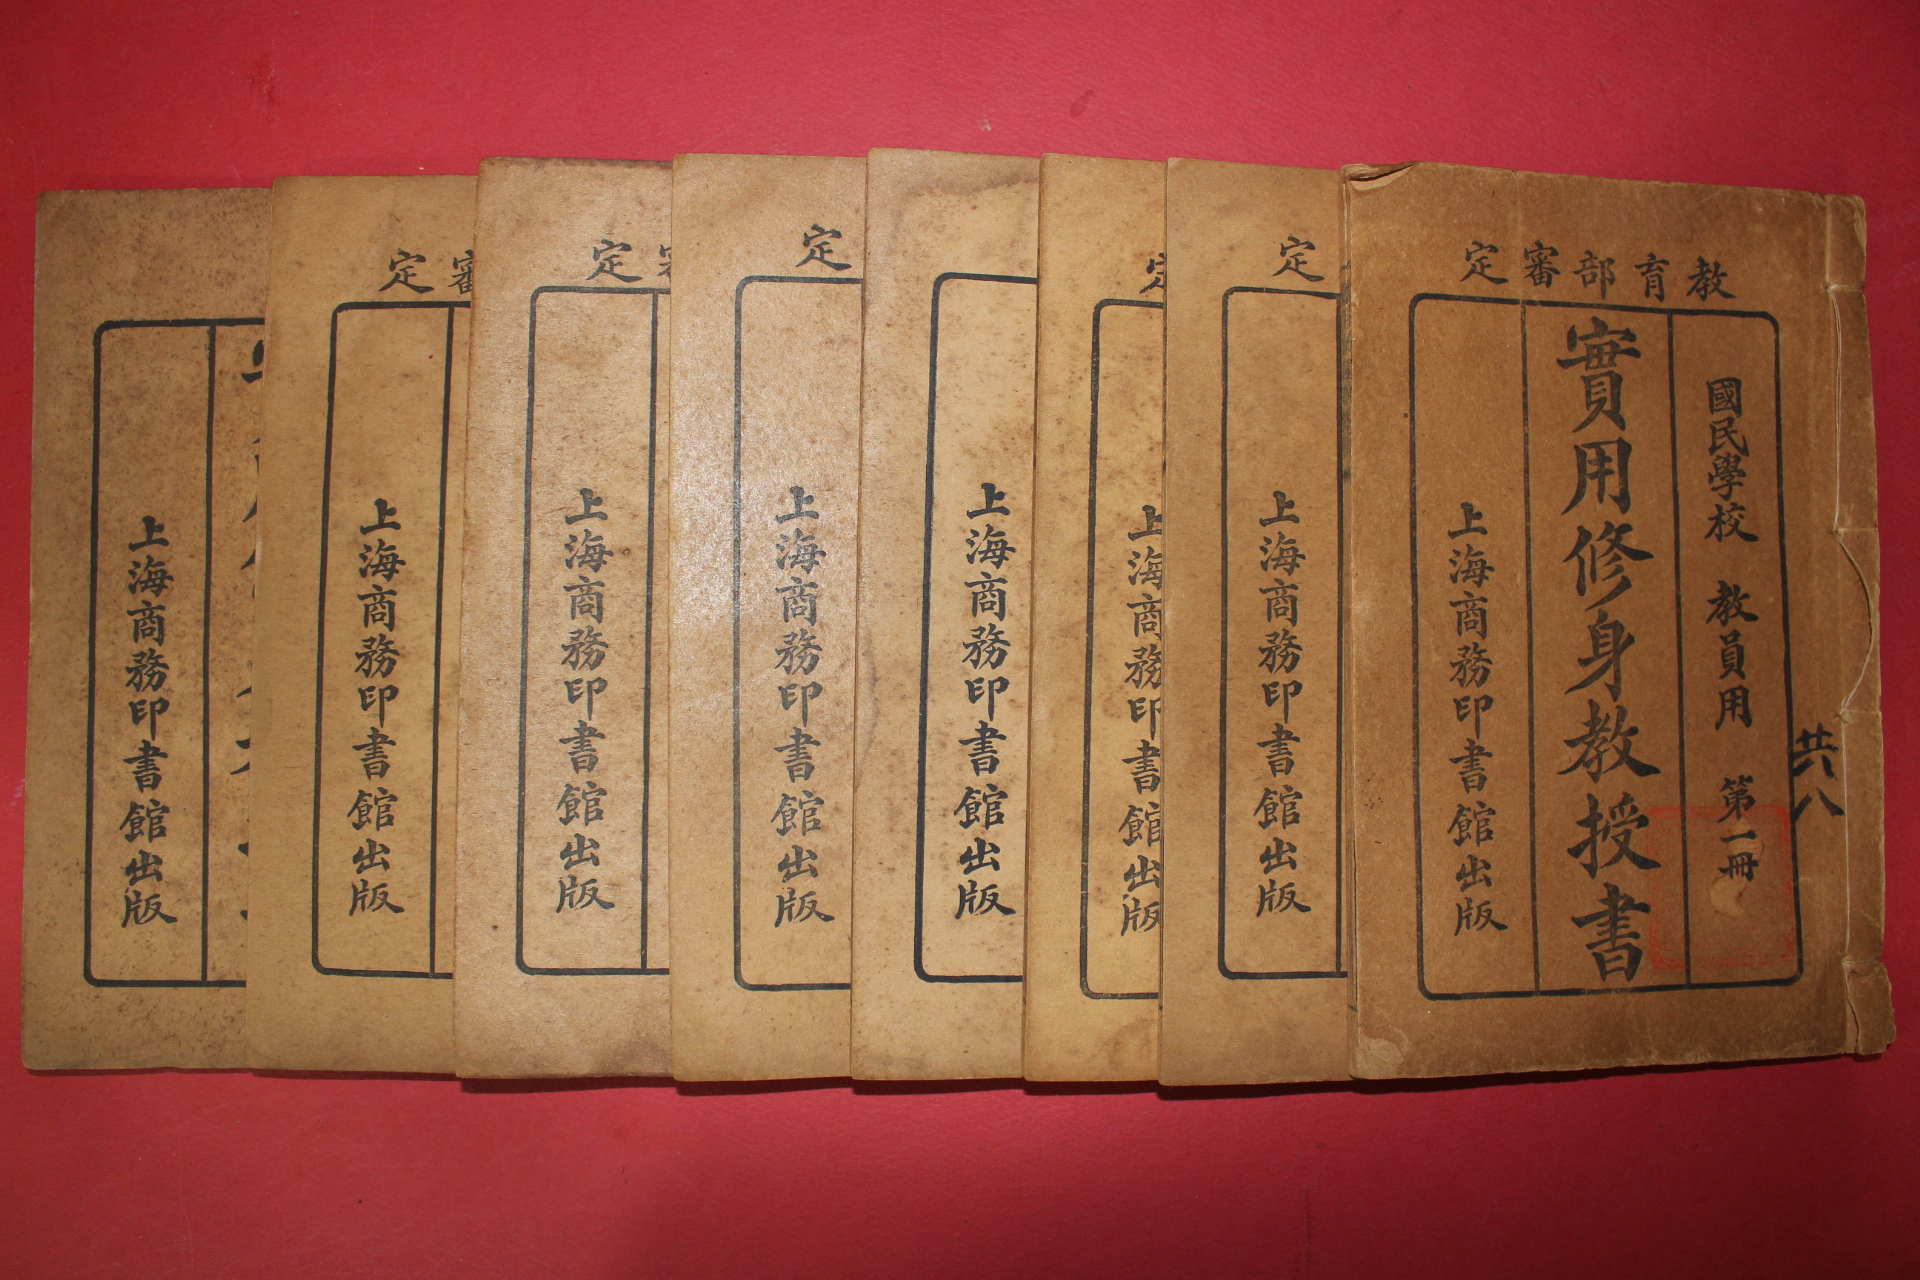 教育部審定
國民學校 教員用 第一冊
實用修身教授書
上海商務印書館出版
共八
定
上海商務印書館出版
上海商務印書館出版
上海商務印書館出版
定
上海商務印書館出版
審定
上海商務印書館出版
審定
上海商務印書館出版
上海商務印書館出版